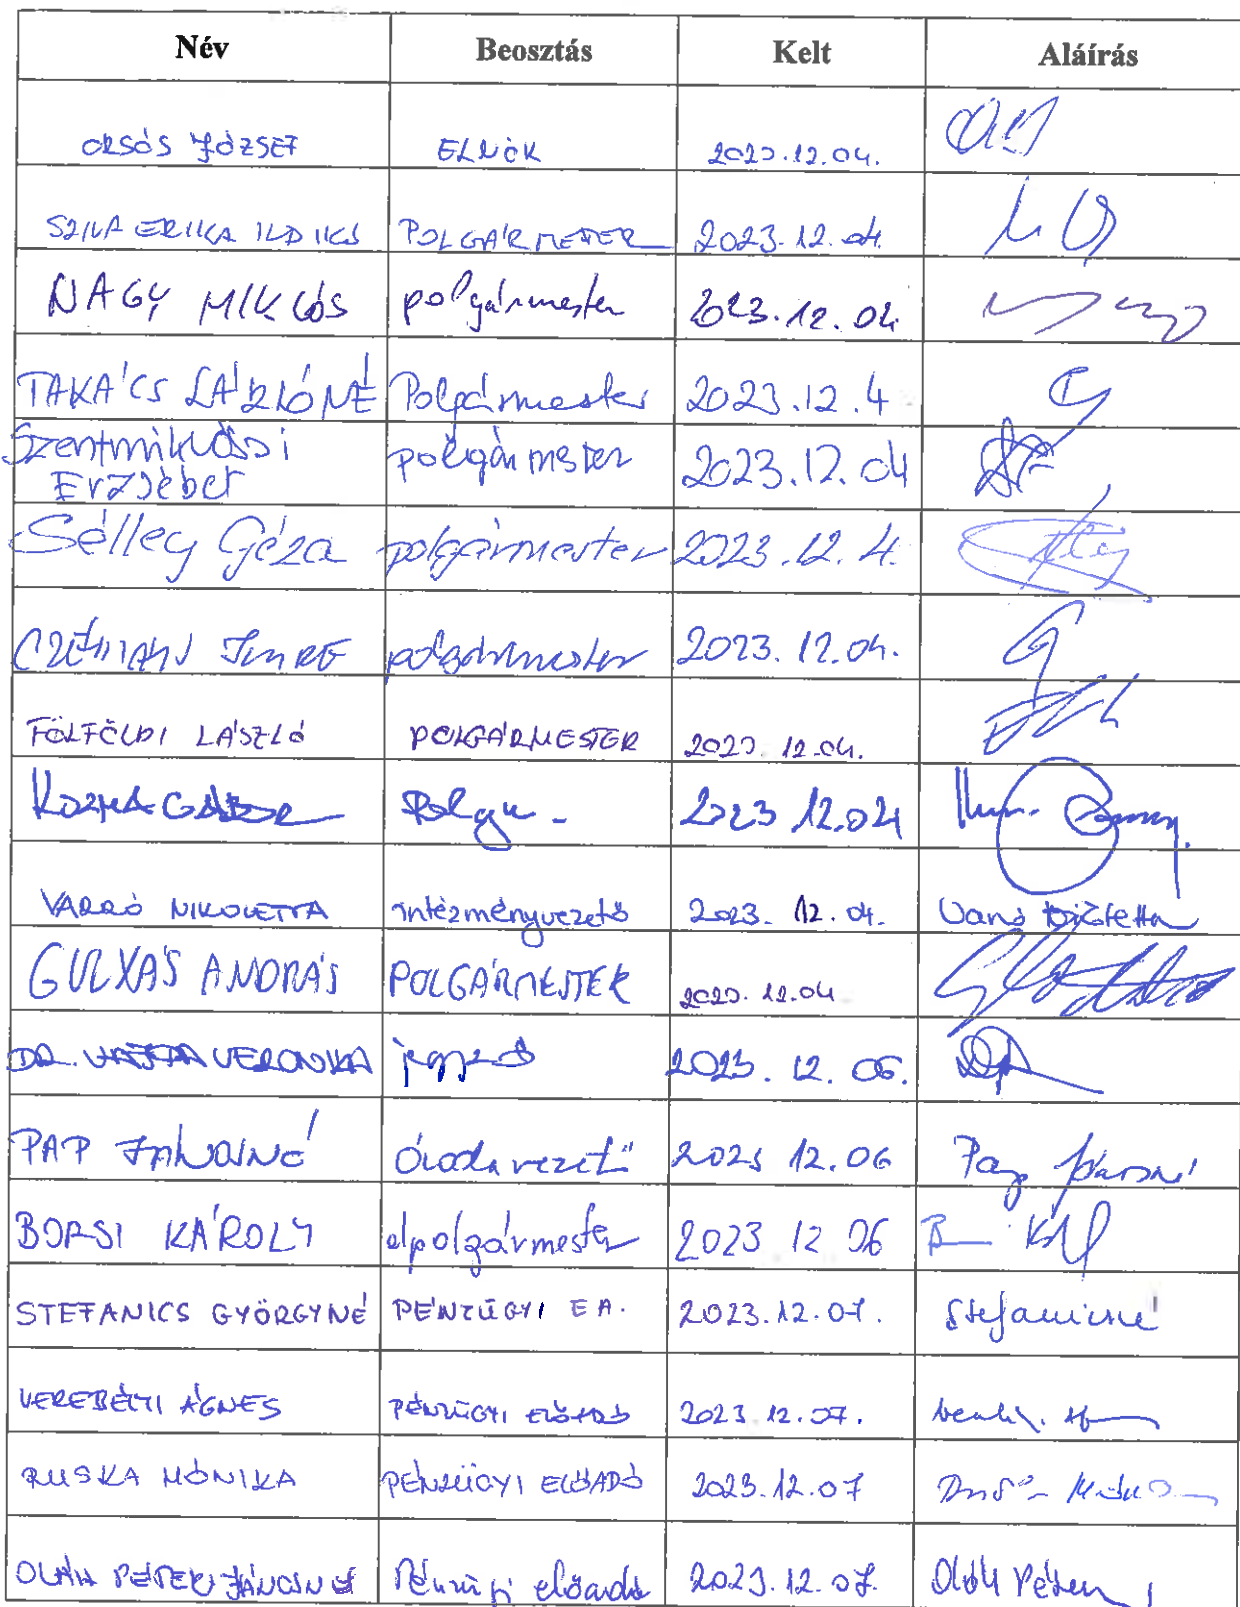 Név Beosztás Kelt Aláírás
ORSÓS JÓZSEF ELNÖK 2023.12.04.
SZIVA ERIKA ILDIKÓ POLGÁRMESTER 2023.12.04.
NAGY MIKLÓS polgármester 2023.12.04
TAKÁCS LÁSZLÓNÉ Polgármester 2023.12.4
Szentmiklósi
Erzsébet polgármester 2023.12.04
Sélley Géza polgármester 2023.12.4.
IMRE polgármester 2023.12.04.
FÖLFÖLDI LÁSZLÓ POLGÁRMESTER 2023.12.04.
KOZMA GÁBOR Polgm. 2023 12.04
VARRÓ NIKOLETTA intézményvezető 2023. 12. 04. Varró Nikoletta
GULYÁS ANDRÁS POLGÁRMESTER 2023.12.04
DR. VAJDA VERONIKA jegyző 2023. 12. 06.
PAP Óvodavezető 2023 12.06 Pap
BORSI KÁROLY alpolgármester 2023 12 06 B
STEFANICS GYÖRGYNÉ PÉNZÜGYI EA. 2023.12.07. Stefanicsné
VEREBÉLYI ÁGNES PÉNZÜGYI ELŐADÓ 2023.12.07.
RUSKA MÓNIKA PÉNZÜGYI ELŐADÓ 2023.12.07
OLÁH PÉTER JÁNOSNÉ Pénzügyi előadó 2023.12.07. Oláh Péter